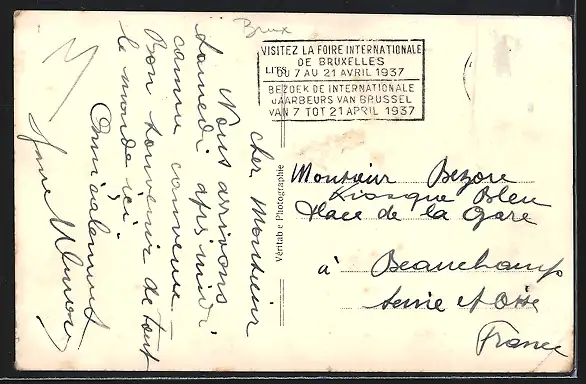 Brux
VISITEZ LA FOIRE INTERNATIONALE
DE BRUXELLES
DU 7 AU 21 AVRIL 1937
BEZOEK DE INTERNATIONALE
JAARBEURS VAN BRUSSEL
VAN 7 TOT 21 APRIL 1937
Cher Monsieur
Nous arrivons
samedi après midi
comme convenu —
Bon souvenir de tout
le monde ici.
Amicalement
Véritable Photographie
Monsieur Bezore
Kiosque Bleu
Place de la Gare
à Beauchamp
Seine et Oise
France